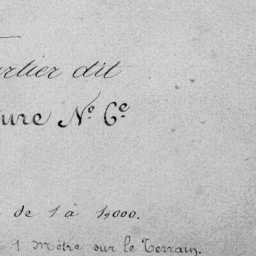 rtier dit
ure N.o 6.e
de 1 à 1,000.
1 Mètre sur le Terrain.